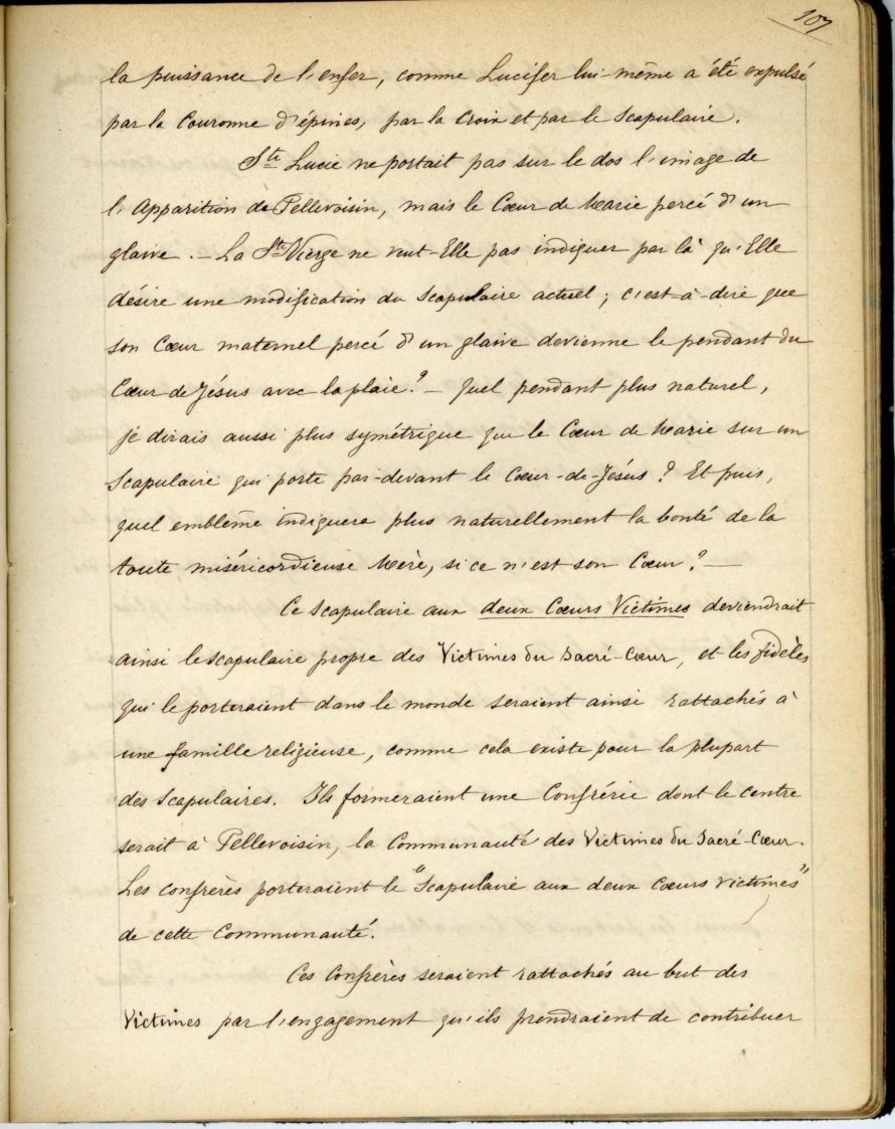 107
la puissance de l'enfer, comme Lucifer lui-même a été expulsé
par la Couronne d'épines, par la Croix et par le Scapulaire.
Ste Lucie ne portait pas sur le dos l'image de
l'Apparition de Pellevoisin, mais le Cœur de Marie percé d'un
glaive. – La Ste Vierge ne veut-Elle pas indiquer par là qu'Elle
désire une modification du Scapulaire actuel ; c'est-à-dire que
son Cœur maternel percé d'un glaive devienne le pendant du
Cœur de Jésus avec la plaie ? – Quel pendant plus naturel,
je dirais aussi plus symétrique que le Cœur de Marie sur un
Scapulaire qui porte par-devant le Cœur-de-Jésus ? Et puis,
quel emblème indiquera plus naturellement la bonté de la
toute miséricordieuse Mère, si ce n'est son Cœur ? –
Ce Scapulaire aux deux Cœurs Victimes deviendrait
ainsi le scapulaire propre des Victimes du Sacré-Cœur, et les fidèles
qui le porteraient dans le monde seraient ainsi rattachés à
une famille religieuse, comme cela existe pour la plupart
des Scapulaires. Ils formeraient une Confrérie dont le centre
serait à Pellevoisin, la Communauté des Victimes du Sacré-Cœur.
Les confrères porteraient le "Scapulaire aux deux cœurs victimes"
de cette Communauté.
Ces Confrères seraient rattachés au but des
Victimes par l'engagement qu'ils prendraient de contribuer